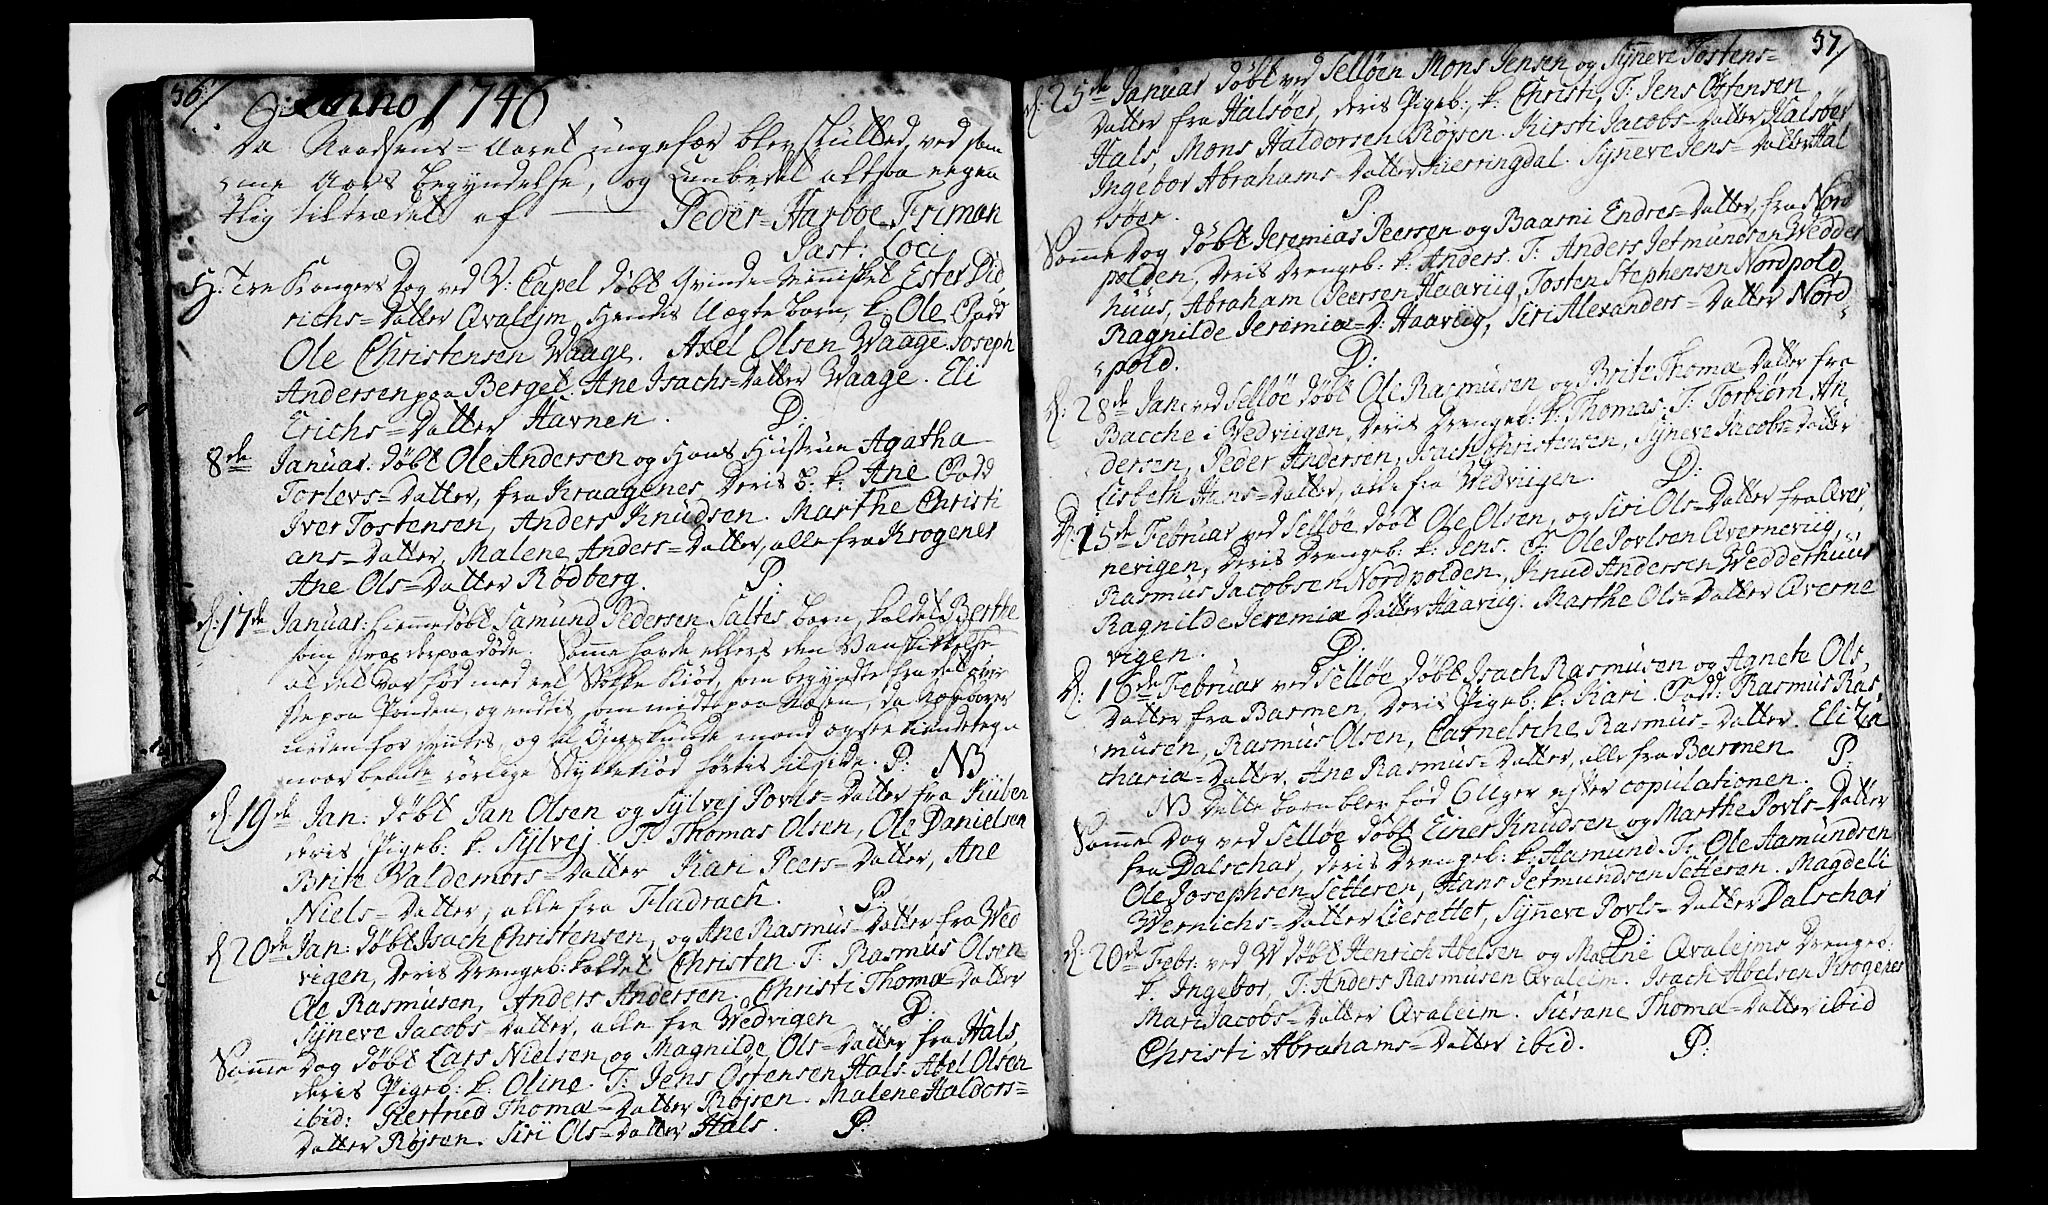 56
Anno 1746
Da Naadsens-Aaret ungefær blev slutted, ved sam
me Aars begyndelse, og Embedet altsaa egen
tlig tiltrædet af — Peder-Harboe-Friman
Past: Loci
H: Tre Kongers Dag ved V: Capel døbt Qvinde-Mennisket Ester Did
richs-Datter Qvalejm, Hendis Uægte barn, k. Ole Fadd
Ole Christensen Waage. Axel Olsen Waage. Joseph
Andersen paa Berget. Ane Isachs-Datter Waage. Eli
Erichs-Datter Havnen. P:
8de Januar: døbt Ole Andersen og Hans Hustrue Agatha
Torlevs-Datter, fra Kraagenes Deris B. k. Ane Fadd
Iver Tostensen, Anders Knudsen. Marthe Christi
ans-Datter, Malene Anders-Datter, alle fra Krogenes
Ane Ols-Datter Rødberg. P.
d. 17de Januar: hiemmedøbt Samund Pedersen Saltes barn, kaldet Berthe
som strax derpaa døde. Samme havde ellers den Vanskikkelse
at det var fød med eet Støkke Kiød, som begyndte fra det øver
ste paa Panden, og endtes som midt paa Næsen, da Næseborer
neden for syntes, og et Øye kunde mand og see kiendetegn
naar bemte rørlige Stykke kiød førtes til side. P: NB
d 19de Jan: døbt Jan Olsen og Sylvej Povls-Datter fra Kuben
deris Pigeb: k. Sylvej. F. Thomas Olsen, Ole Danielsen
Brite Valdemors-Datter Kari Peers-Datter, Ane
Niels-Datter, alle fra Fladrach. P.
d 20de Jan: døbt Isach Christensen, og Ane Rasmus-Datter fra Wed
vigen, Deris Drengeb: kaldet Christen. F: Rasmus Olsen
Ole Rasmusen, Anders Andersen. Christi Thomæ-Datter
Syneve Jacobs-Datter, alle fra Wedvigen P.
Samme Dag døbt Lars Nielsen, og Magnilde Ols-Datter fra Hals,
deris Pigeb: k. Oline. F: Jens Ostensen Hals. Abel Olsen
ibid: Giertrud Thomæ-Datter Røjsen. Malene Haldors=
Datter Røjsen. Siri Ols-Datter Hals. P:
57
d: 25de Januar døbt ved Selløen Mons Jensen og Syneve Tostens=
Datter fra Halsøer, deris Pigeb:, k. Christi, F: Jens Ostensen
Hals, Mons Haldorsen Røjsen. Kirsti Jacobs-Datter Halsøer
Ingebor Abrahams-Datter Hierringdal. Syneve Jens-Datter Hal
søer. P
Samme Dag døbt Jeremias Peersen og Baarni Endres-Datter, fra Nord
polden, Deris Drengeb: k. Anders. F: Anders Jetmundsen Wedder
huus, Abraham Peersen Haavig, Tosten Stephensen Nordpold,
Ragnilde Jeremiæ-D: Haavig, Siri Alexanders-Datter Nord=
pold. P:
d: 28de Jan: ved Selløe døbt Ole Rasmusen og Brite Thomæ Datter fra
Bacche i Wedviigen, Deris Drengeb: k. Thomas. F: Torbiørn An
dersen, Peder Andersen, Isach Christensen, Syneve Jacobs-Datter
Lisbeth Hans-Datter, alle fra Wedviigen. P:
D: 15de Februar ved Selløe døbt Ole Olsen, og Siri Ols-Datter fra Qver
nevigen, Deris Drengeb: k. Jens. F: Ole Povlsen Qverneviig,
Rasmus Jacobsen Nordpolden, Knud Andersen Wedderhuus
Ragnilde Jeremiæ Datter Haavig. Marthe Ols-Datter Qverne
vigen. P:
d: 16de Februar ved Selløe døbt Isach Rasmusen og Agnete Ols,
Datter fra Barmen, Deris Pigeb: k. Kari. Fadd: Rasmus Ras,
musen, Rasmus Olsen, Carnelsche Rasmus-Datter. Eli Za
chariæ-Datter. Ane Rasmus-Datter, alle fra Barmen. P:
NB Dette barn blev fød 6 Uger efter copulationen.
Samme Dag ved Selløe døbt Einer Knudsen og Marthe Povls-Datter
fra Dalschar, deris Drengeb: k. Hamund. F: Ole Hamundsen
Ole Josephsen Setteren, Hans Jetmundsen Setteren. Magdeli
Wernichs-Datter Liesettet, Syneve Povls-Datter Dalschar
P:
d: 20de Febr: ved W døbt Henrich Abelsen og Malene Qvalejms Drengeb:
k. Ingebor, F: Anders Rasmusen Qvaleim. Isach Abelsen Krogenes
Mari Jacobs-Datter Qvaleim. Susane Thomæ-Datter ibid
Christi Abrahams-Datter ibid. P: